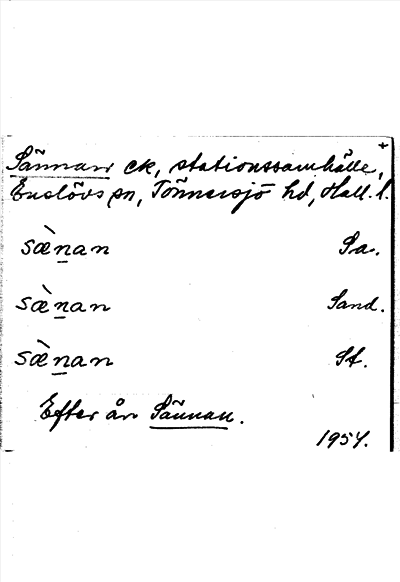 +
Sännan ek, stationssamhälle,
Enslövs sn, Tönnersjö hd, Hall. l.
sæ̀n̲an Sa.
sæ̀n̲an Sand.
sæ̀n̲an St.
Efter ån Sännan.
1954.